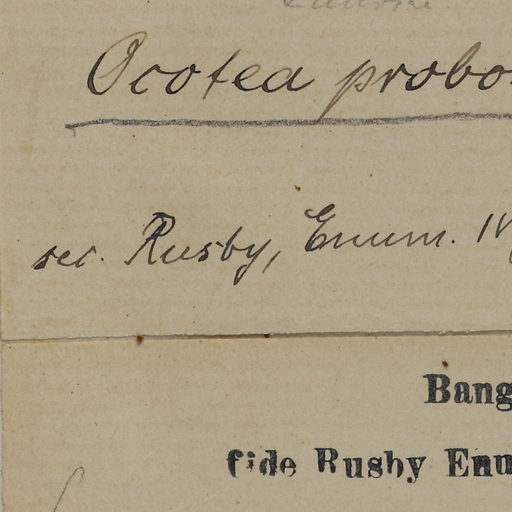 Ocotea probo
sec. Rusby, Enum.
Bang
fide Rusby Enu